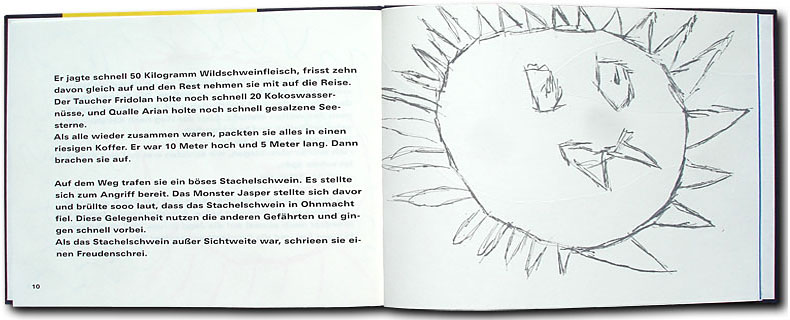 Er jagte schnell 50 Kilogramm Wildschweinfleisch, frisst zehn
davon gleich auf und den Rest nehmen sie mit auf die Reise.
Der Taucher Fridolan holte noch schnell 20 Kokoswasser-
nüsse, und Qualle Arian holte noch schnell gesalzene See-
sterne.
Als alle wieder zusammen waren, packten sie alles in einen
riesigen Koffer. Er war 10 Meter hoch und 5 Meter lang. Dann
brachen sie auf.
Auf dem Weg trafen sie ein böses Stachelschwein. Es stellte
sich zum Angriff bereit. Das Monster Jasper stellte sich davor
und brüllte sooo laut, dass das Stachelschwein in Ohnmacht
fiel. Diese Gelegenheit nutzen die anderen Gefährten und gin-
gen schnell vorbei.
Als das Stachelschwein außer Sichtweite war, schrieen sie ei-
nen Freudenschrei.
10